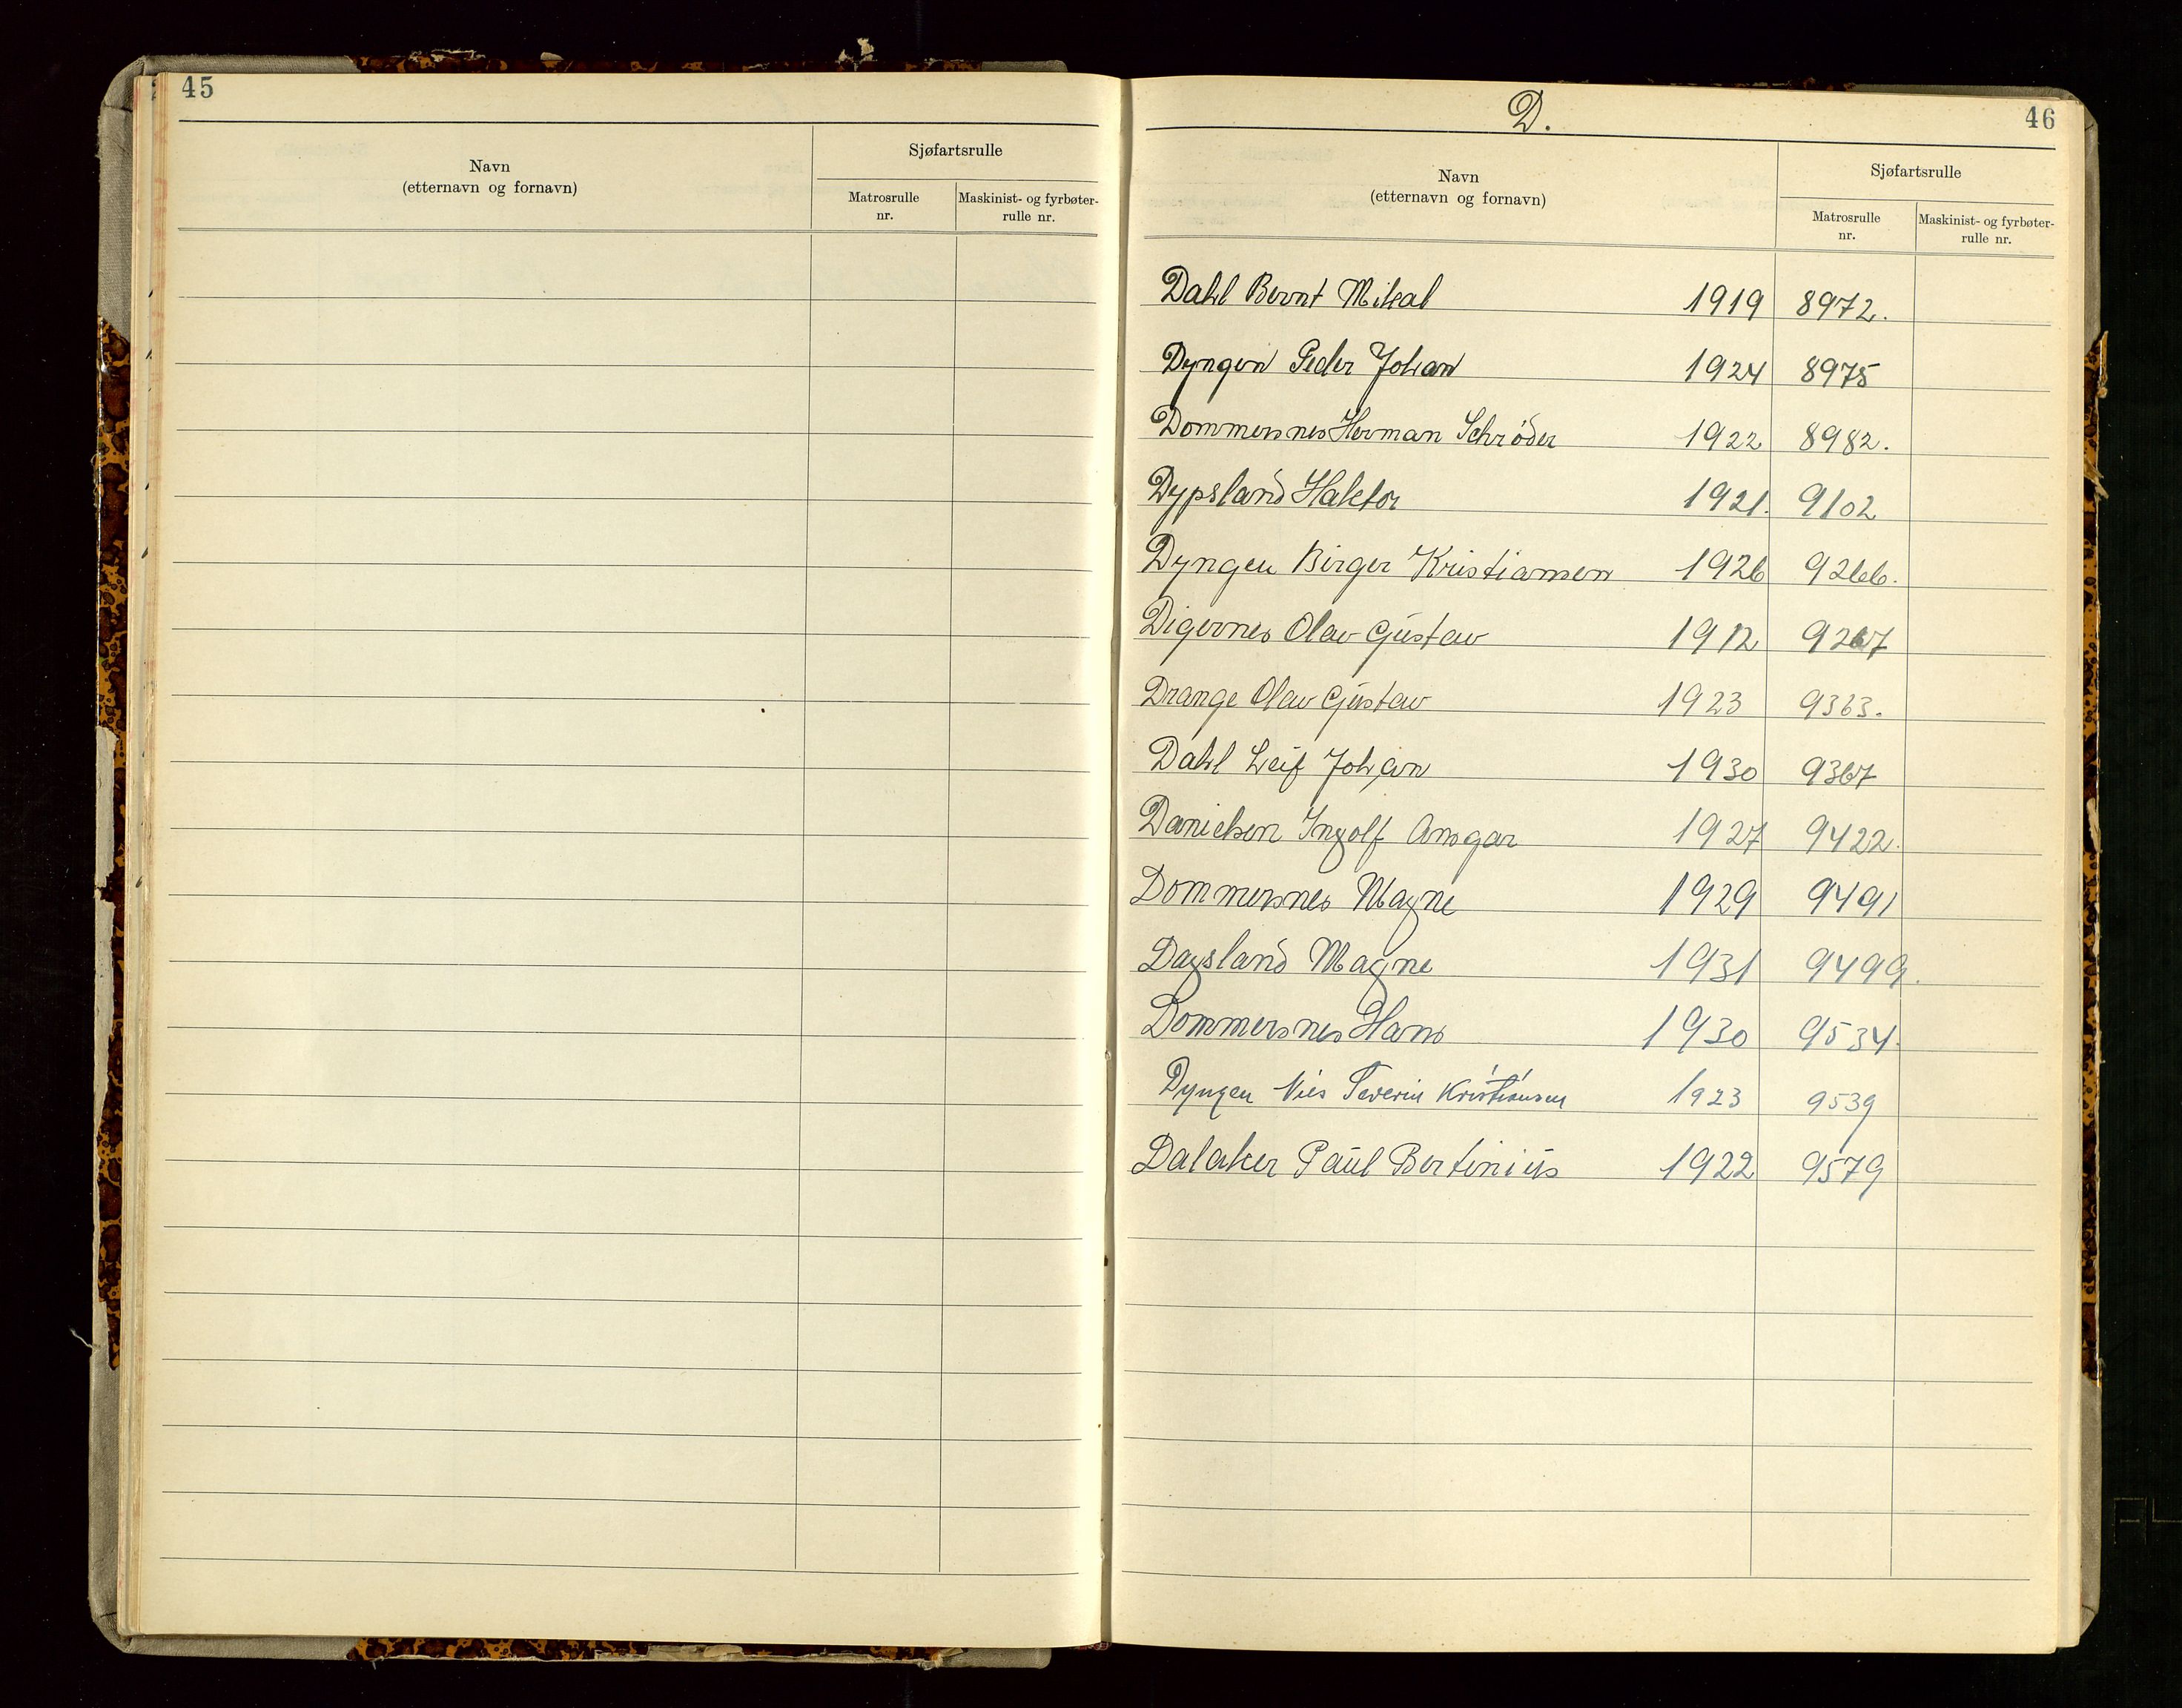 45
Navn
(etternavn og fornavn)
Sjøfartsrulle
Matrosrulle
nr.
Maskinist- og fyrbøter-
rulle nr.
D.
46
Navn
(etternavn og fornavn)
Sjøfartsrulle
Matrosrulle
nr.
Maskinist- og fyrbøter-
rulle nr.
Dahl Bernt Mikal 1919 8972.
Dyngen Peder Johan 1924 8975
Dommersnes Herman Schrøder 1922 8982.
Dypsland Haktor 1921. 9102
Dyngen Birger Kristiansen 1926 9266.
Digernes Olav Gustav 1912 9267
Drange Olav Gustav 1923 9363.
Dahl Leif Johan 1930 9367
Danielsen Ingolf Ansgar 1927 9422.
Dommersnes Magne 1929 9491
Dagsland Magne 1931 9499.
Dommersnes Hans 1930 9534.
Dyngen Nils Severin Kristiansen 1923 9539
Dalaker Paul Bertinius 1922 9579